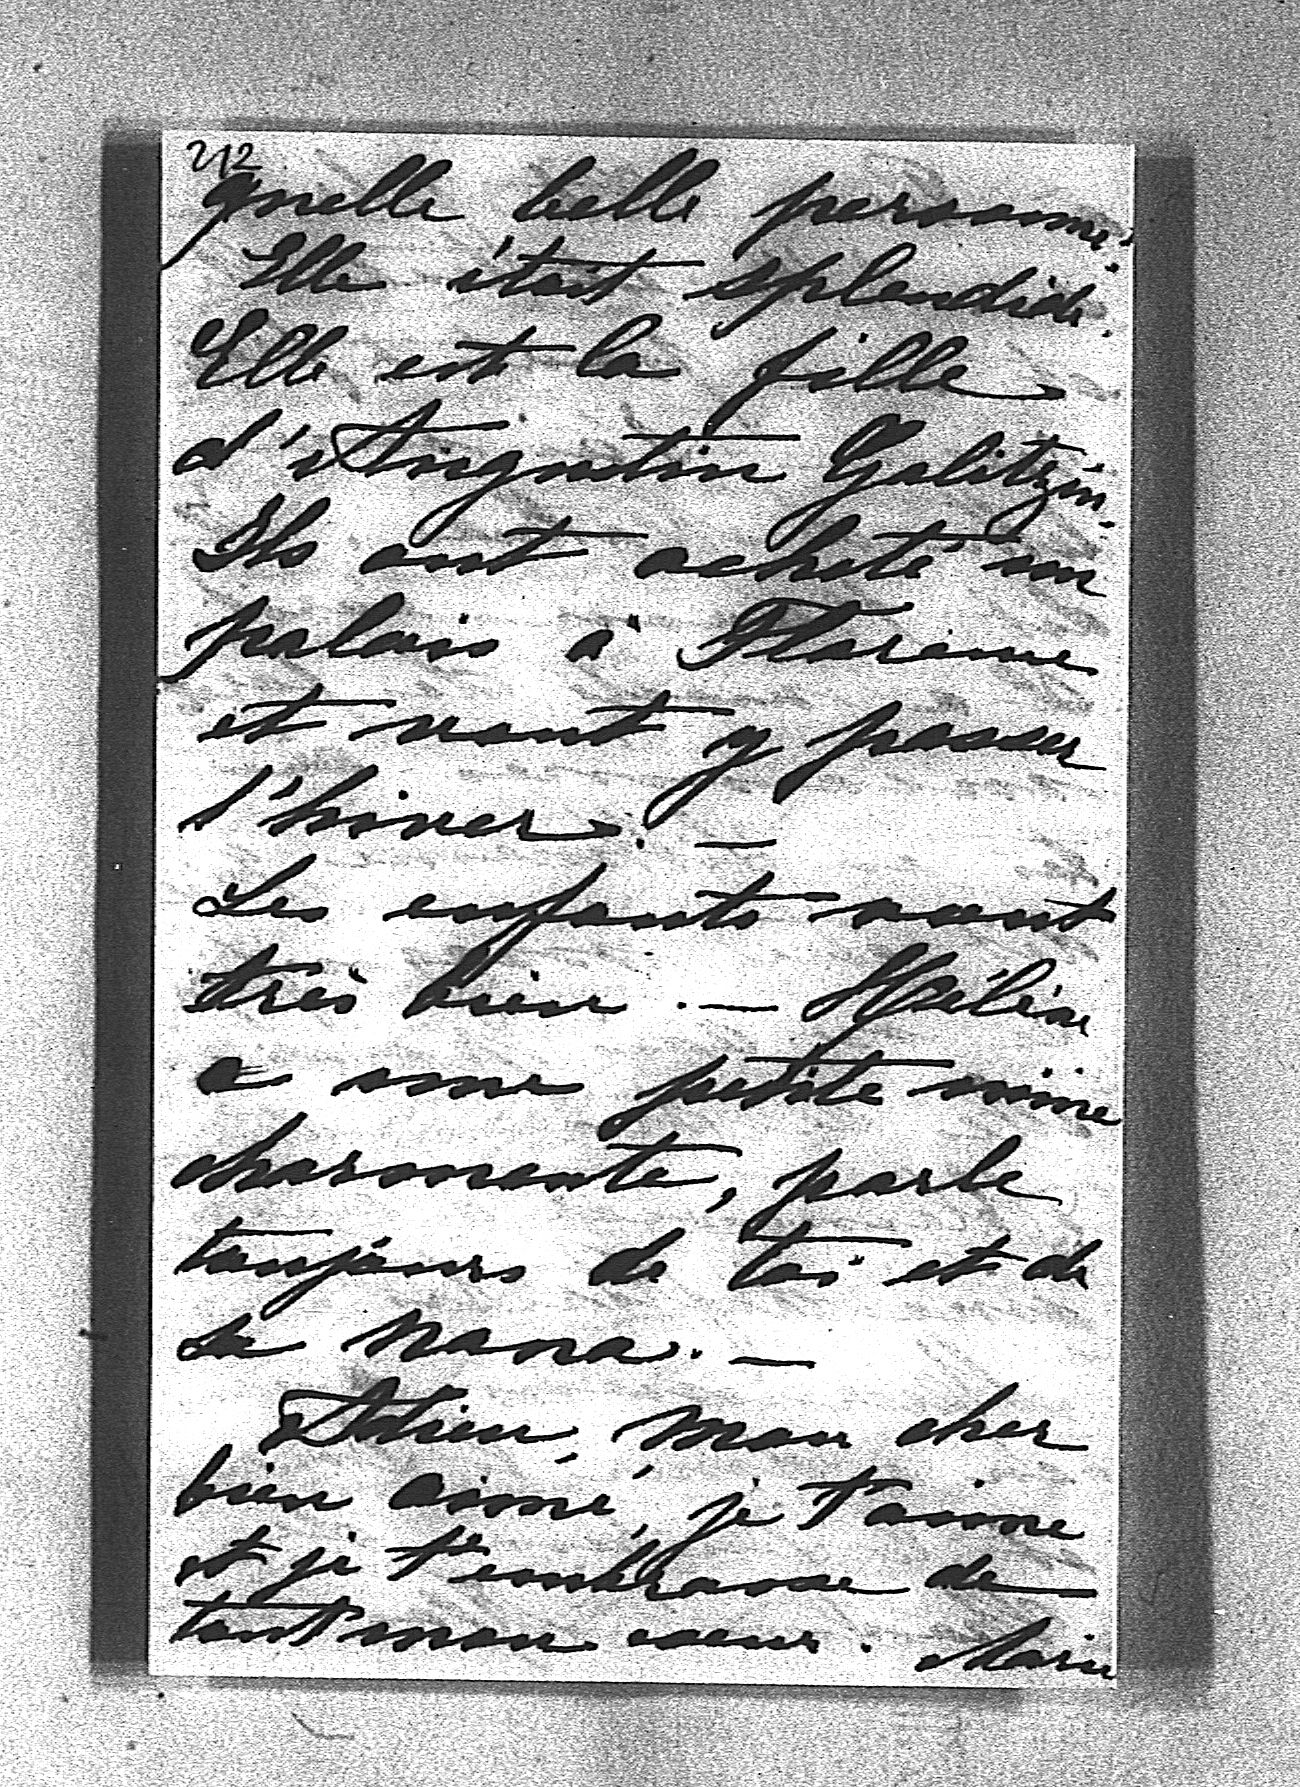 212
quelle belle personne!
Elle était splendide.
Elle est la fille
d'Augustin Galitzin.
Ils ont acheté un
palais à Florence
et vont y passer
l'hiver. —
Les enfants vont
très bien. — Hélène
a une petite mine
charmante, parle
toujours de toi et de
sa Nana. —
Adieu, mon cher
bien aimé, je t'aime
et je t'embrasse de
tout mon coeur. Marie